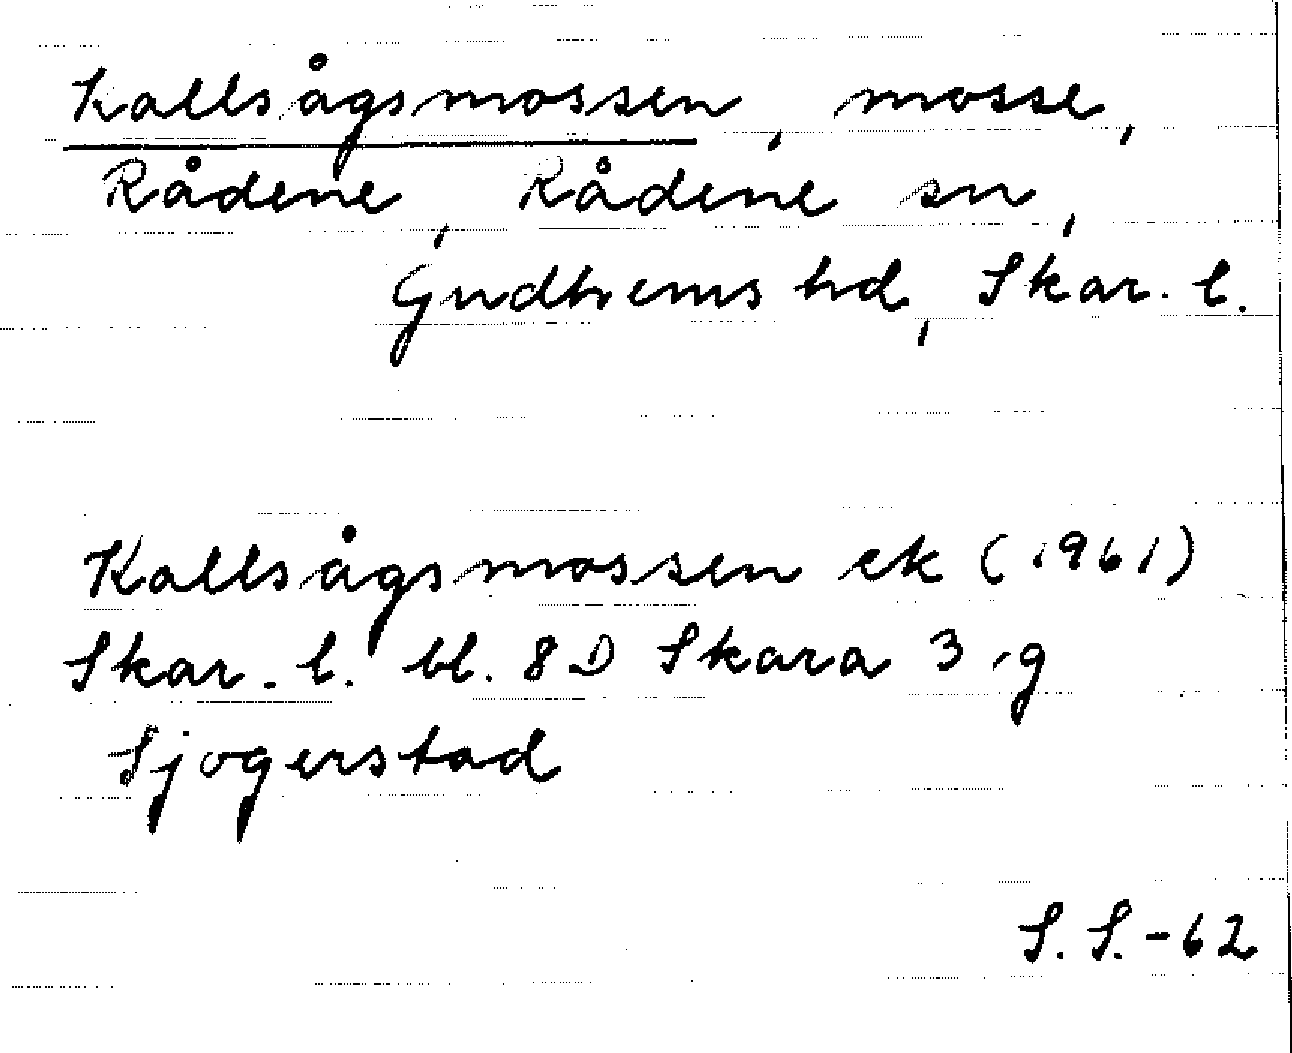 Kallsågsmossen, mosse,
Rådene, Rådene sn,
Gudhems hd, Skar. l.
Kallsågsmossen ek (1961)
Skar. l. bl. 8 D Skara 3 g
Sjogerstad
S. S. - 62